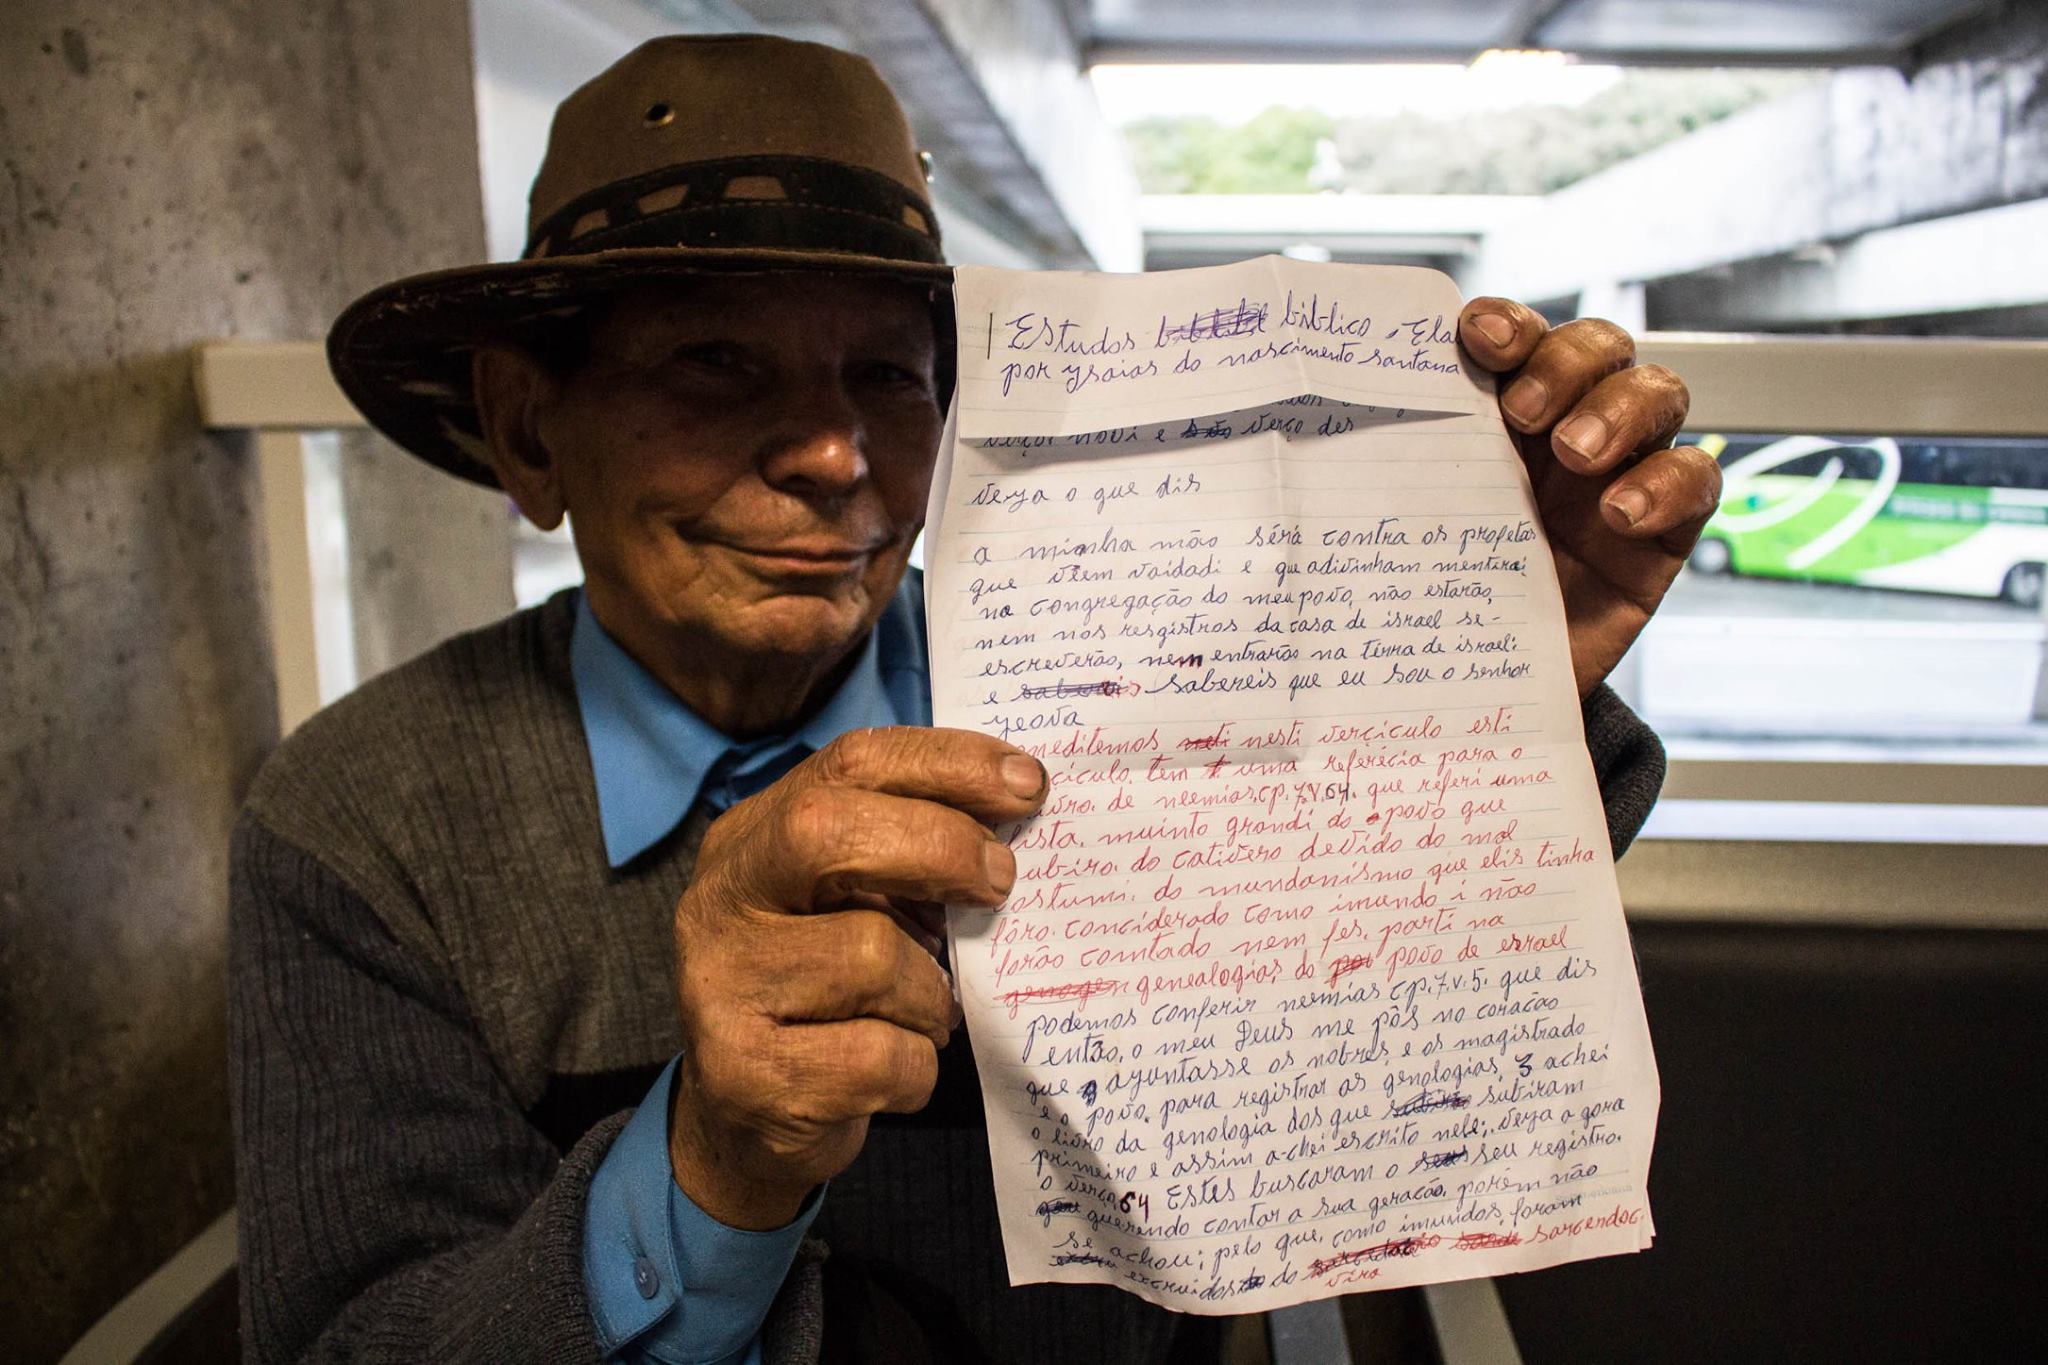 Estudos biblico, Ela
por Ysaias do nascimento santana
novi e verço des
veya o que dis
a minha mão sérá contra os profetas
que vêem vaidadi e que adivinham mentira:
na congregação do meu povo, não estarão,
nem nos resgistros da casa de israel se-
escreverão, nem entrarão na terra de israel:
e sabereis que eu sou o senhor
yeova
meditemos nesti verçiculo esti
çiculo. tem uma referécia para o
de neemias, cp. 7. v. 64. que referi uma
lista. muinto grandi do povo que
ubiro. do cativero devido do mal
costumi. do mundanismo que elis tinha
fôro. conciderado como imundo i não
forão comtado nem fes. parti na
genealogias, do povo de esrael
podemos conferir neemias cp. 7. v. 5. que dis
então, o meu Deus me pôs no coração
que ayuntasse os nobres, e os magistrado
e o povo. para registrar as genologias, 3 achei
o livro da genologia dos que subiram
primeiro e assim a-chei escrito nele;. veya a gora
o verço 64 Estes buscaram o seu registro.
querendo contar a sua geracão, porém não
se achou; pelo que, como imundos, foram
excruidos do sarcendoc.